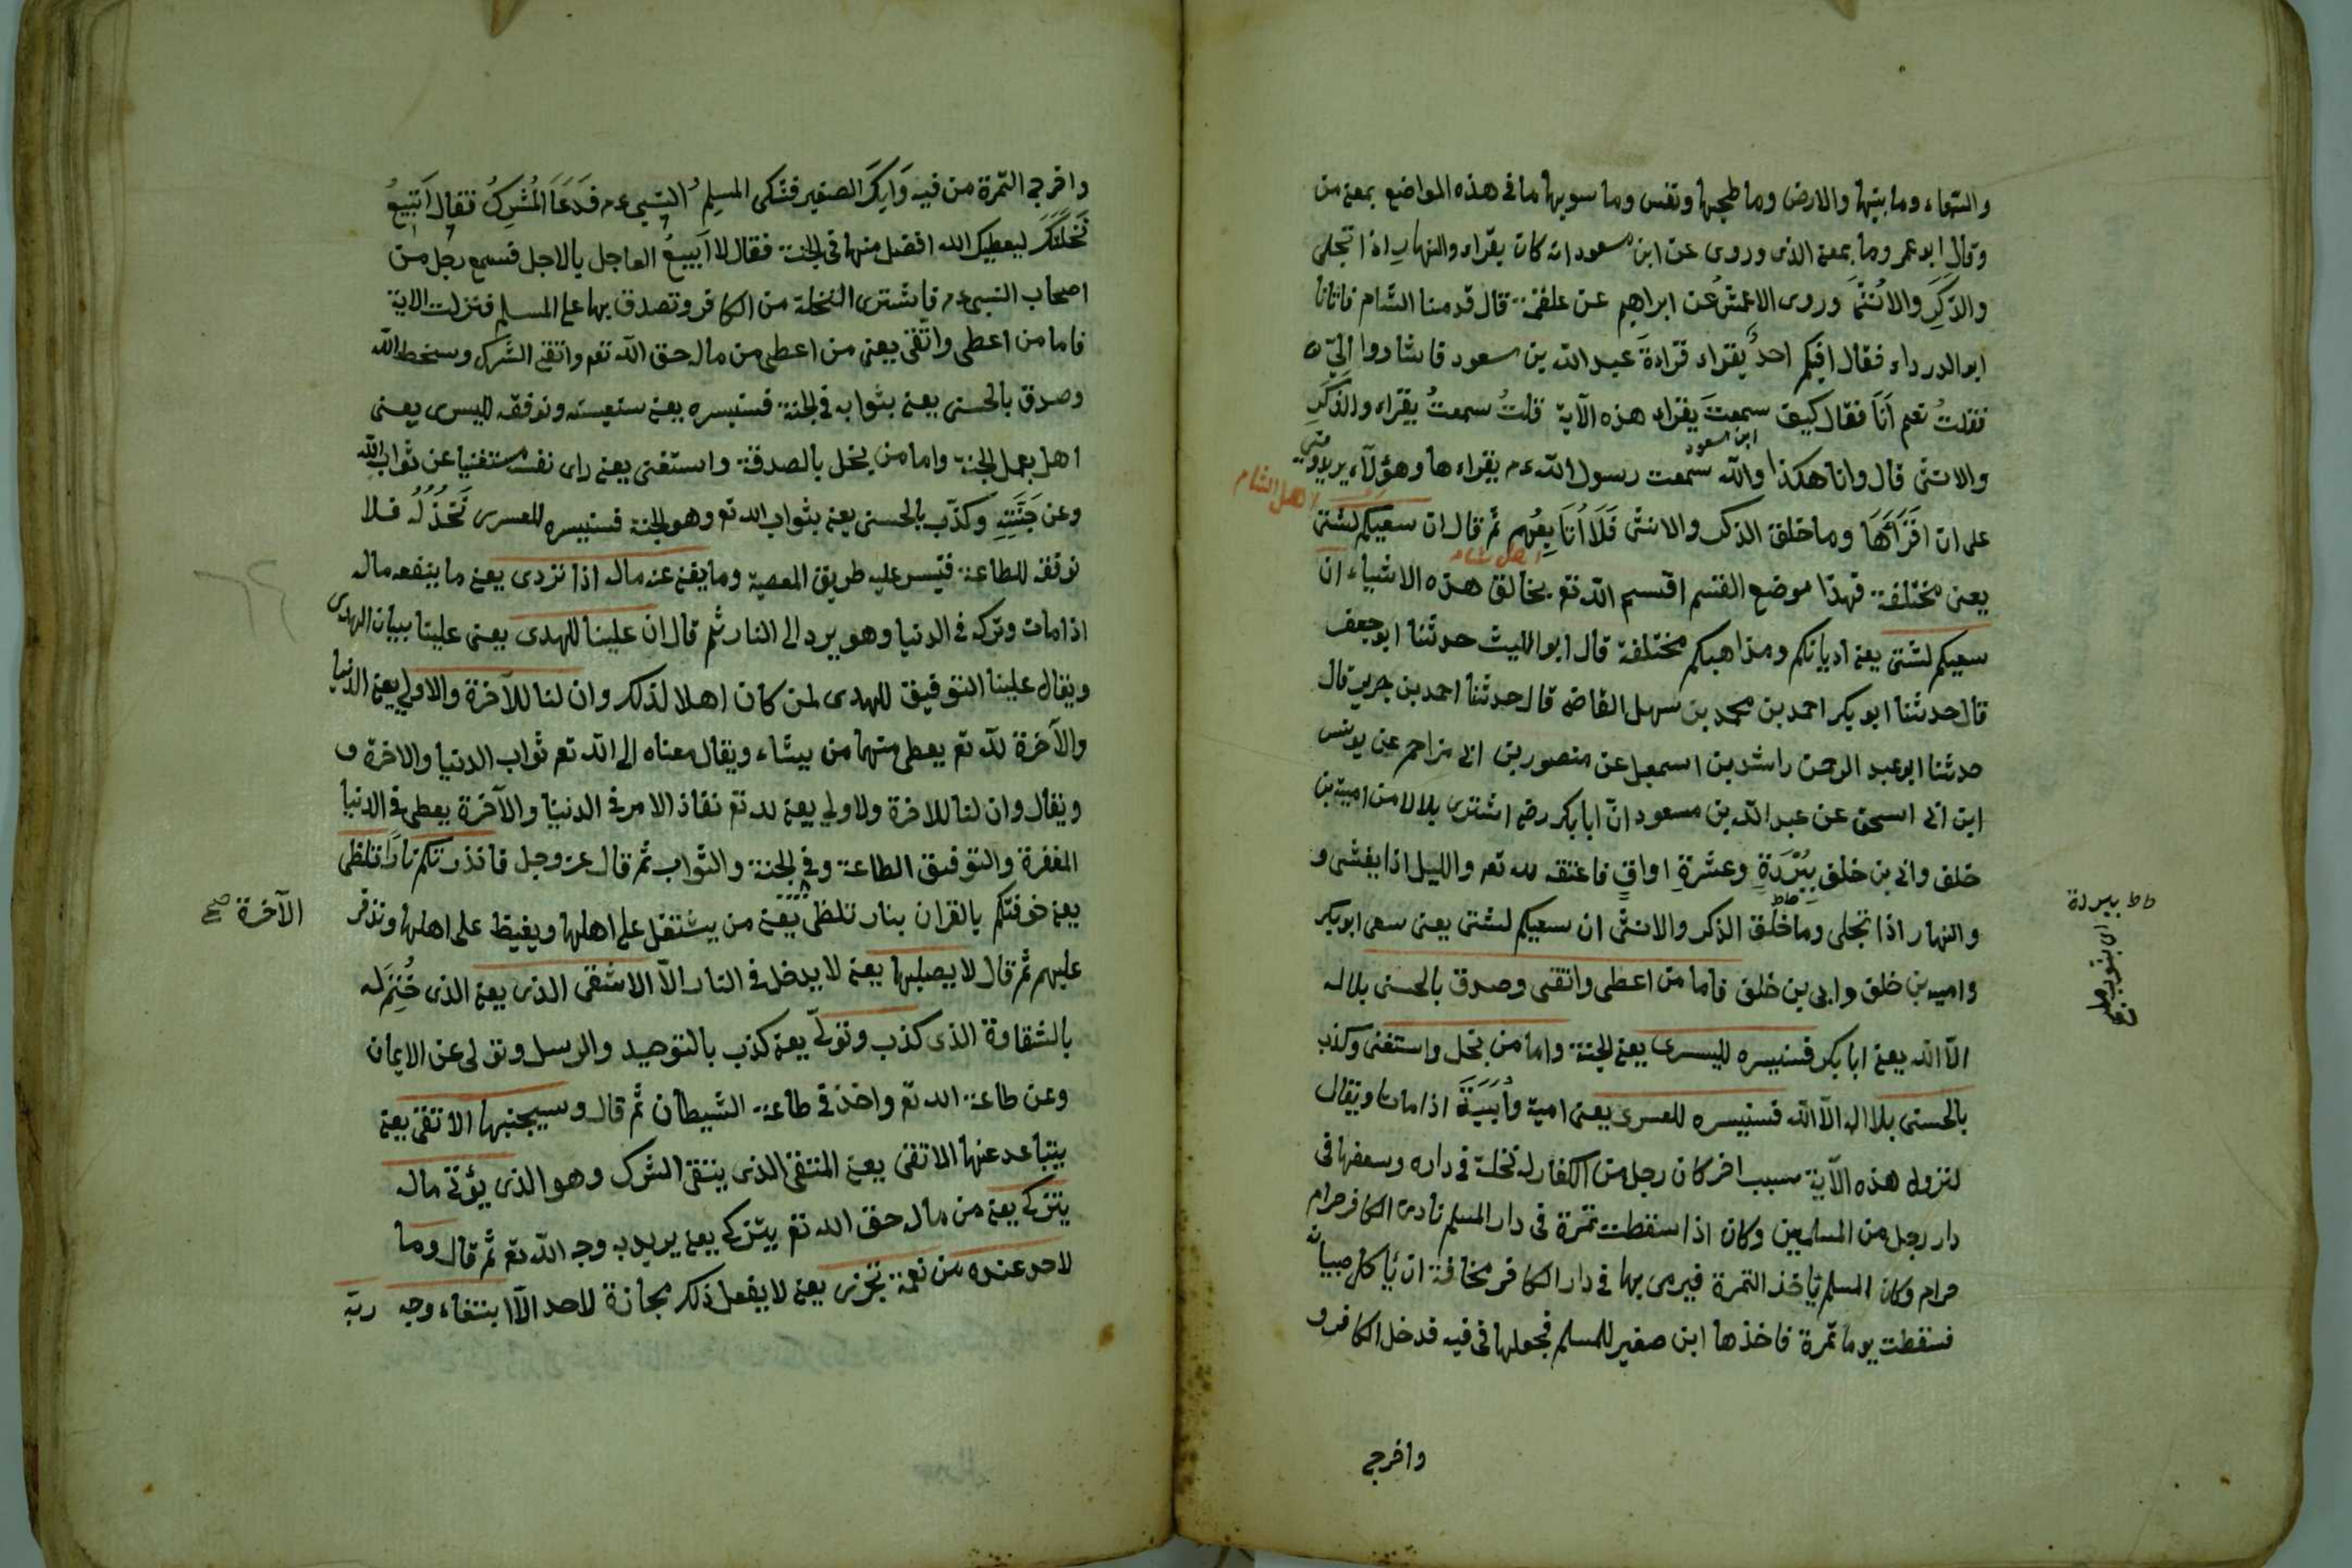 والسماء وما بنيها والارض وما طحيها ونفس وما سويها ما فى هذه المواضع بمعنى من
وقال ابو عمر وما بمعنى الذى وروى عن ابن مسعود انه كان يقراء والنهار اذا تجلى
والذَّكَرِ والاُنثى وروى الاعمش عن ابراهيم عن علقمة قال قدمنا الشام فاتانا
ابو الدرداء فقال افيكم احدٌ يقراء قراءةَ عبد الله بن مسعود فاشاروا اِلَيَّ
فقلتُ نعم اَنَا فقال كيف سمعتَ يقراء هذه الآية قلتُ سمعتُ يقراء والذكَرِ
ابن مسعود
والانثى قال وانا هكذا والله سمعت رسول الله عم يقراءها وهؤلآء يريدونى
اهل الشام
على ان اقرَأَهَا وما خلق الذكر والانثى فَلَا اُتَابِعُهم ثم قال ان سعيكم لشتى
اهل شام
يعنى مختلفة فهذا موضع القسم اقسم الله تع بخالق هذه الاشياء ان
سعيكم لشتى يعنى اديانكم ومذاهبكم مختلفة قال ابو الليث حدثنا ابو جعفر
قال حدثنا ابو بكر احمد بن محمد بن سهل القاضى قال حدثنا احمد بن جرير قال
حدثنا ابو عبد الرحمن راشد بن اسمعيل عن منصور بن ابى مزاحم عن يونس
ابن ابى اسحق عن عبد الله بن مسعود انّ ابا بكر رضى اشترى بلالا من امية بن
خلف وابى بن خلف بِبُرْدَةٍ وعشرةِ اواقٍ فاعتقه لله تع والليل اذا يغشى و
والنهار اذا تجلى وما خلق الذكر والانثى ان سعيكم لشتى يعنى سعى ابو بكر
واميه بن خلف وابى بن خلف فاما من اعطى واتقى وصدق بالحسنى بلا اله
الا الله يعنى ابا بكر فسنيسره لليسرى يعنى الجنة واما من بخل واستغنى وكذب
بالحسنى بلا اله الا الله فسنيسره للعسرى يعنى امية واُبَيَّةَ اذا ماتا ويقال
لنزول هذه الآية سبب اخر كان رجل من الكفار له نخلة فى داره وسعفها فى
دار رجل من المسلمين وكان اذا سقطت تمرة فى دار المسلم نادى الكافر حرام
حرام وكان المسلم ياخذ التمرة فيرمى بها فى دار الكافر مخافة ان ياكل صبيانه
فسقطت يوما تمرة فاخذها ابن صغير للمسلم فجعلها فى فيه فدخل الكافر و
واخرج
ببردة
اى بثوب
واخرج التمرة من فيه وَاَبْكَى الصغير فشكى المسلمُ النبى عم فَدَعَا المُشْرِكَ فقال اَتَبِيعُ
نَخْلَتَكَ ليعطيك الله افضل منها فى الجنة فقال لا اَبِيعُ العاجل بالاجل فسمع رجل من
اصحاب النبى عم فاشترى النخلة من الكافر وتصدق بها على المسلم فنزلت الاية
فاما من اعطى واتّقى يعنى من اعطى من ماله حق الله تع واتقى الشرك وسخط الله
وصدق بالحسنى يعنى بثوابه فى الجنة فسنيسره يعنى سنعينه ونوفقه لليسرى يعنى
اهل بعمل الجنة واما من بخل بالصدقة واستغنى يعنى راى نفسه مستغنيا عن ثواب الله
وعن جَنَّتِهِ وكذّب بالحسنى يعنى بثواب الله تع وهو الجنة فسنيسره للعسرى نَخْذُلُهُ فلا
نوفقه للطاعة فتيسر عليه طريق المعصية وما يغنى عنه ماله اذا تردى يعنى ما ينفعه ماله
اذا مات وتركه فى الدنيا وهو يرد الى النار ثم قال ان علينا للهدى يعنى علينا بيان الهدى
ويقال علينا التوفيق للهدى لمن كان اهلا لذلك وان لنا للآخرة والاولى يعنى الدنيا
والآخرة لله تع يعطى منهما من يشاء ويقال معناه الى الله تع ثواب الدنيا والاخرة و
ويقال وان لنا للاخرة ولاولى يعنى لله تع نفاذ الامر فى الدنيا والآخرة يعطى فى الدنيا
المغفرة والتوفيق الطاعة وفى الجنة والثواب ثم قال عز وجل فانذرتكم نارًا تلظى
الآخرة صح
يعنى خوفتكم بالقران بنار تلظى يعنى من يشتغل على اهلها ويغيظ على اهلها وتزفر
عليهم ثم قال لا يصليها يعنى لا يدخل فى النار الآ الاشقى الذى يعنى الذى خُتِمَ له
بالشقاوة الذى كذب وتولّى يعنى كذب بالتوحيد والرسل وتولى عن الايمان
وعن طاعة الله تع واخذ فى طاعة الشيطان ثم قال وسيجنبها الاتقى يعنى
يتباعد عنها الاتقى يعنى المتقى الذى يتقى الشرك وهو الذى يؤتى ماله
يتزكى يعنى من ماله حق الله تع يتزكى يعنى يريد به وجه الله تع ثم قال وما
لاحد عنده من نعمة تجزى يعنى لا يفعل ذلك مجازة لاحد الآ ابتغاء وجه ربّه